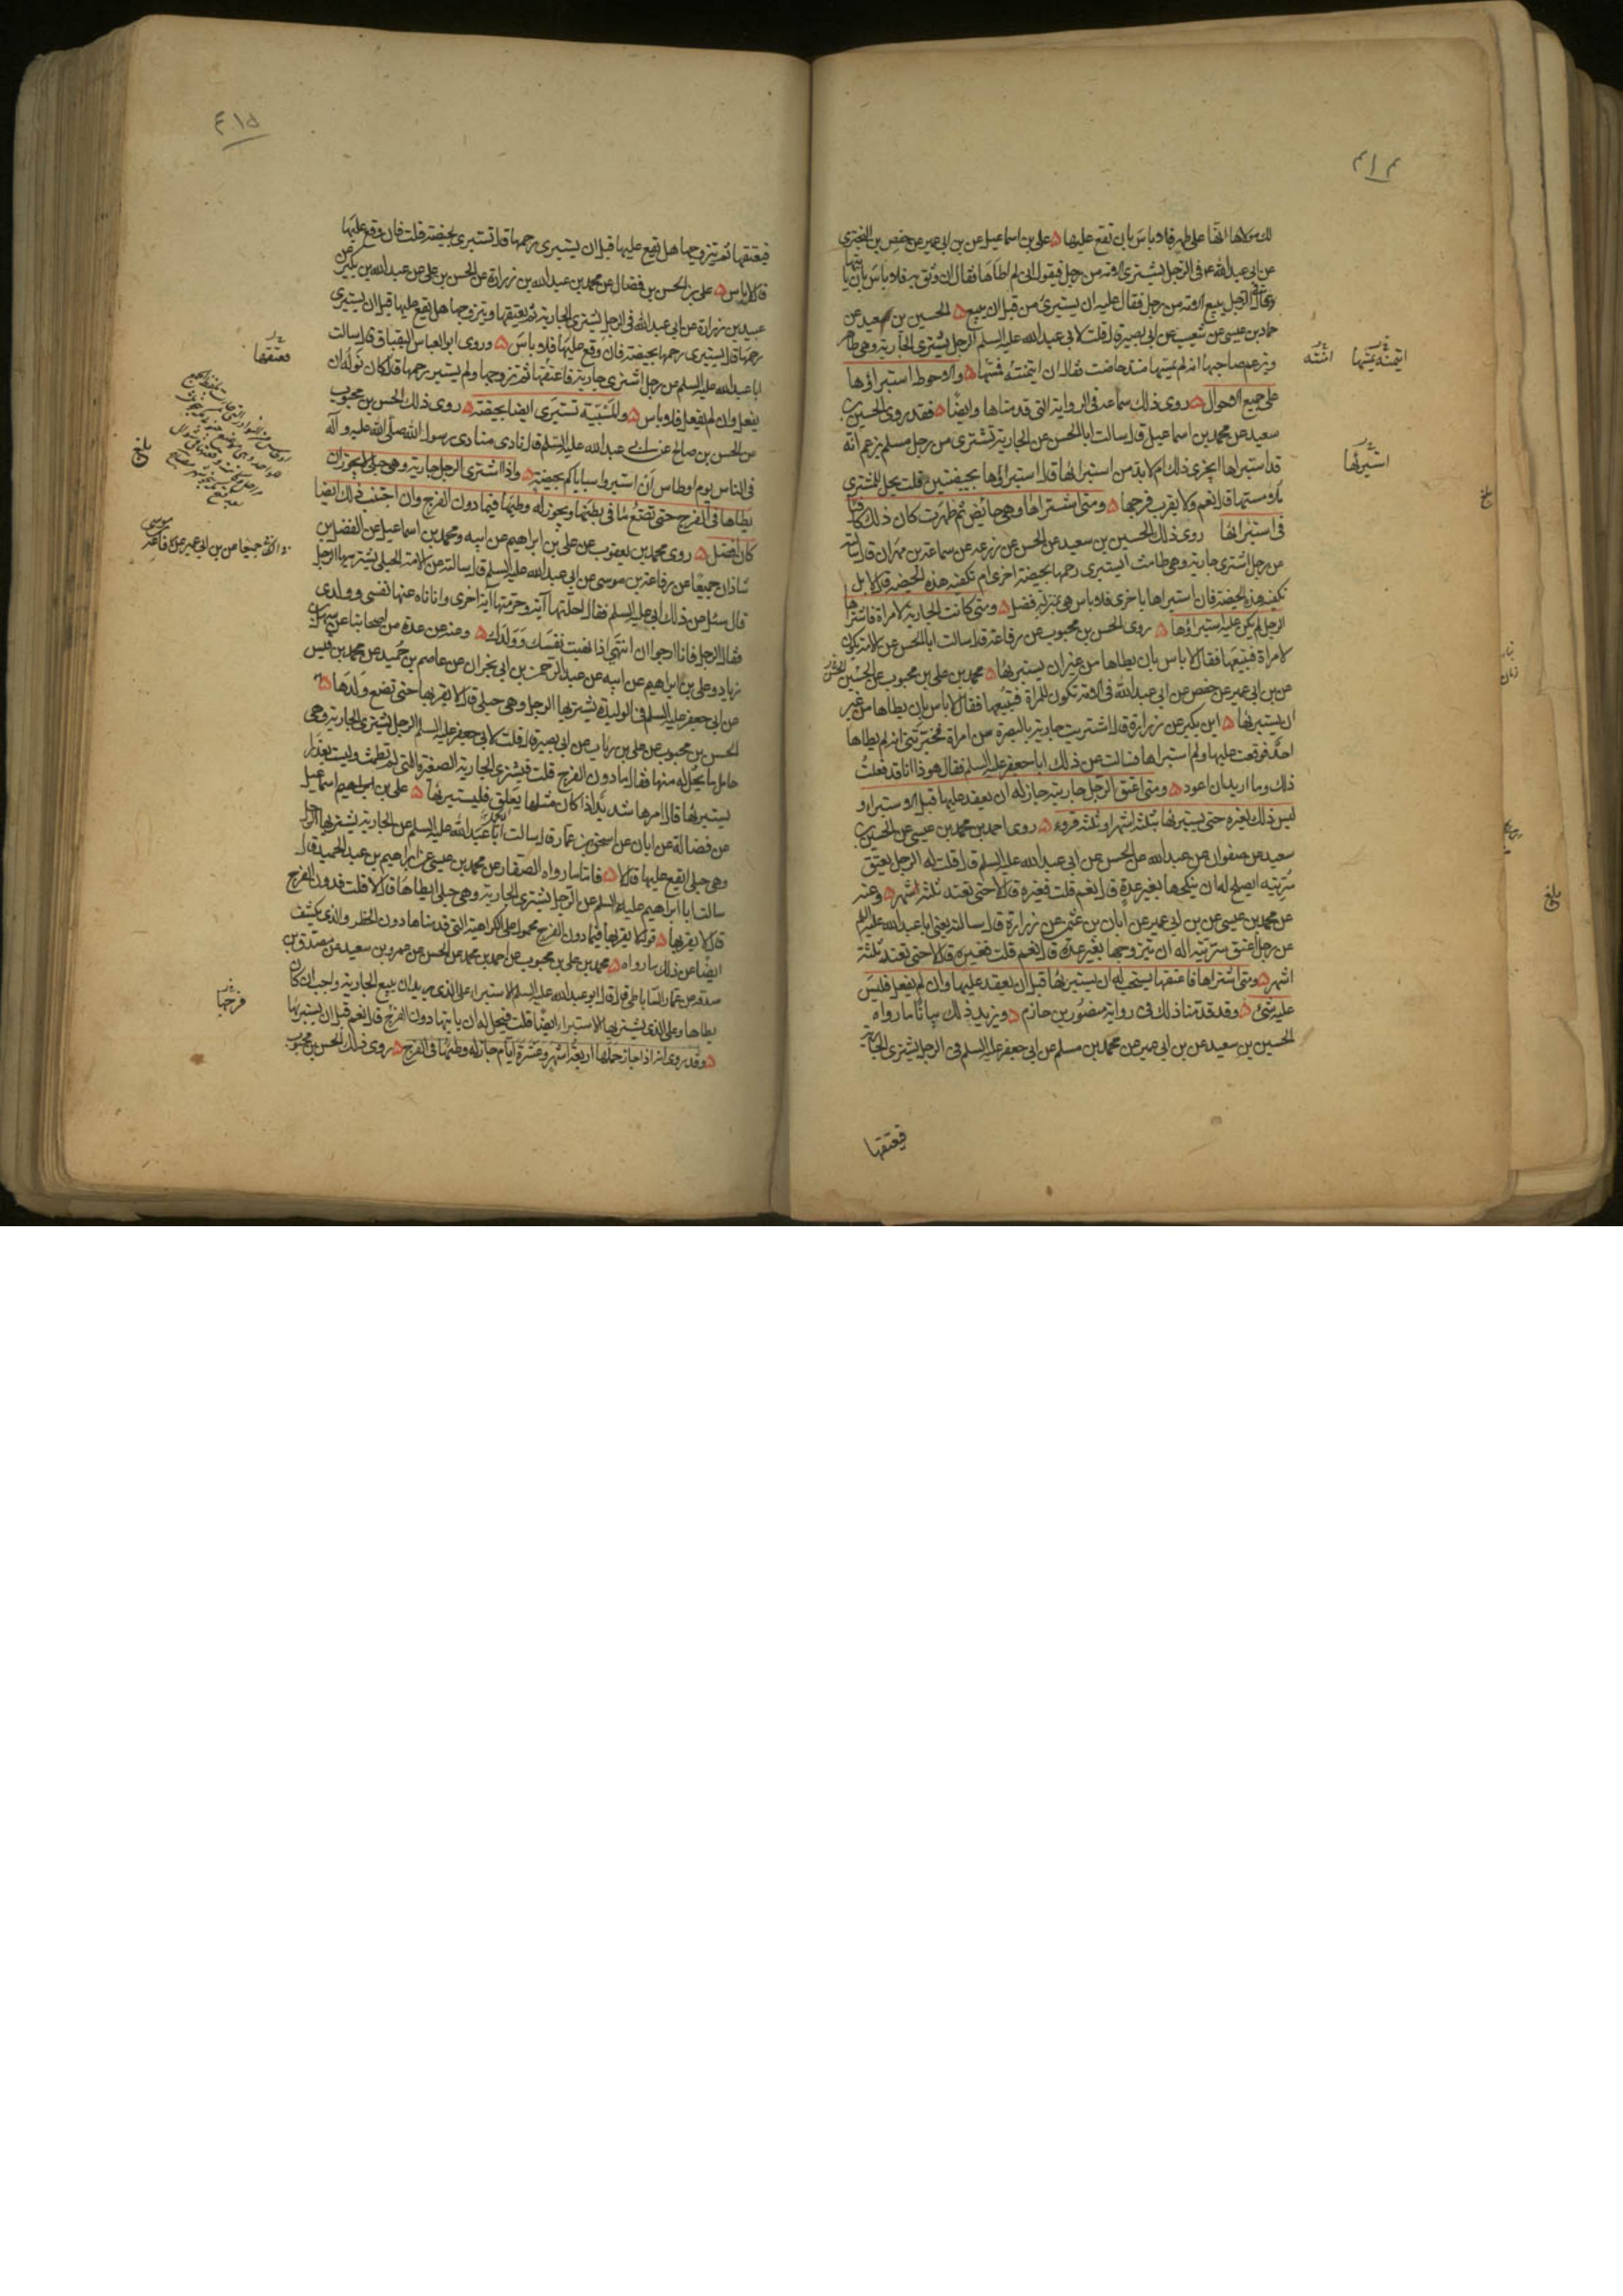 ٤١٤
لك مولاها انها على طهر فلا باس بان تقع عليها ۵ على بن اسماعيل عن بن ابى عمير عن حفص بن البخترى
عن ابى عبد الله عـ فى الرجل يشترى الامة من رجل فيقول انى لم اطأها فقال ان وثق به فلا باس بان ياتيها
وقال فى الرجل يبيع الامة من رجل فقال عليه ان يستبرئ من قبل ان يبيع ۵ الحسين بن سعيد عن
حماد بن عيسى عن شعيب عن ابى بصير قال قلت لابى عبد الله عليه السلم الرجل يشترى الجارية وهى طاهر
ويزعم صاحبها انه لم يمسها منذ حاضت فقال ان ايتمنته فمسها ۵ والاحوط استبراؤها
على جميع الاحوال ۵ روى ذلك سماعة فى الرواية التى قدمناها وايضا ۵ فقد روى الحسين بن
سعيد عن محمد بن اسماعيل قال سالت ابا الحسن عن الجارية تشترى من رجل مسلم يزعم انه
قد استبراها ايجزى ذلك ام لا بد من استبرائها قال استبرائها بحيضتين قلت يحل للمشترى
ملامستها قال نعم ولا يقرب فرجها ۵ ومتى اشتراها وهى حائض ثم طهرت كان ذلك كافيا
فى استبرائها روى ذلك الحسين بن سعيد عن الحسن عن زرعه عن سماعة بن مهران قال سالته
عن رجل اشترى جارية وهى طامث ايستبرى رحمها بحيضة اخرى ام تكفيه هذه الحيضة قال لا بل
تكفيه هذه الحيضة فان استبراها باخرى فلا باس هى بمنزلة فضل ۵ ومتى كانت الجارية لامراة فاشتراها
الرجل لم يكن عليه استبراؤها ۵ روى الحسن بن محبوب عن رفاعة قال سالت ابا الحسن عن الامة تكون
لامراة فتبيعها فقال لا باس بان يطاها من غير ان يستبرئها ۵ محمد بن على بن محبوب عن الحسين
عن بن ابى عمير عن حفص عن ابى عبد الله فى الامة تكون للمراة فتبيعها فقال لا باس بان يطاها من غير
ان يستبرئها ۵ ابن بكير عن زرارة قال اشتريت جارية بالبصرة من امراة فخبرتنى انه لم يطاها
احد فوقعت عليها ولم استبراها فسالت عن ذلك ابا جعفر عليه السلم فقال هوذا انا قد فعلت
ذلك وما اريد ان اعود ۵ ومتى اعتق الرجل جارية جاز له ان يعقد عليها قبل الاستبراء و
ليس ذلك لغيره حتى يستبرئها بثلثة اشهر او بثلثة قروء ۵ روى احمد بن محمد بن عيسى عن الحسين بن
سعيد عن صفوان عن عبد الله عن الحسن عن ابى عبد الله عليه السلم قال قلت له الرجل يعتق
سريته ايصلح له ان ينكحها بغير عدة قال نعم قلت فغيره قال لا حتى تعتد ثلثة اشهر ۵ وعنه
عن محمد بن عيسى عن بن ابى عمير عن ابان بن عثمن عن زرارة قال سالته يعنى ابا عبد الله عليه السلم
عن رجل اعتق سريته اله ان يتزوجها بغير عدة قال نعم قلت فغيره قال لا حتى تعتد ثلثة
اشهر ۵ ومتى اشتراها فاعتقها يستحب له ان يستبرئها قبل ان يعقد عليها وان لم يفعل فليس
عليه شئ ۵ وقد قدمنا ذلك فى رواية منصور بن حازم ۵ ويزيد ذلك بيانا ما رواه
الحسين بن سعيد عن بن ابى عمير عن محمد بن مسلم عن ابى جعفر عليه السلم فى الرجل يشترى الجارية
فيعتقها
استبرئها
بلغ
٤١٥
فيعتقها ثم يتزوجها هل يقع عليها قبل ان يستبرى رحمها قال تستبرى بحيضة قلت فان وقع عليها
قال لا باس ۵ على بن الحسن بن فضال عن محمد بن عبد الله بن زرارة عن الحسن بن على عن عبد الله بن بكير عن
عبيد بن زرارة عن ابى عبد الله فى الرجل يشترى الجارية ثم يعتقها ويتزوجها هل يقع عليها قبل ان يستبرى
رحمها قال يستبرى رحمها بحيضة فان وقع عليها فلا باس ۵ وروى ابو العباس البقباق قال سالت
ابا عبد الله عليه السلم عن رجل اشترى جارية فاعتقها ثم تزوجها ولم يستبر رحمها قال كان نوله ان
يفعل وان لم يفعل فلا باس ۵ والمسبية تستبرى ايضا بحيضة ۵ روى ذلك الحسن بن محبوب
عن الحسن بن صالح عن ابى عبد الله عليه السلم قال نادى منادى رسول الله صلى الله عليه وآله
فى الناس يوم اوطاس ان استبروا سباياكم بحيضة ۵ واذا اشترى الرجل جارية وهى حبلى لا يجوز ان
يطاها فى الفرج حتى تضع ما فى بطنها ويجوز له وطيها فيما دون الفرج وان اجتنب ذلك ايضا
كان افضل ۵ روى محمد بن يعقوب عن على بن ابراهيم عن ابيه ومحمد بن اسماعيل عن الفضل بن
شاذان جميعا عن رفاعة بن موسى عن ابى عبد الله عليه السلم قال سالته عن الامة الحبلى يشتريها الرجل
قال سئل عن ذلك ابى عليه السلم فقال احلتها آية وحرمتها آية اخرى وانا ناه عنها نفسى وولدى
فقال الرجل فانا ارجو ان انتهى اذا نهيت نفسك وولدك ۵ وعنه عن عدة من اصحابنا عن سهل بن
زياد وعلى بن ابراهيم عن ابيه عن عبد الرحمن بن ابى نجران عن عاصم بن حميد عن محمد بن قيس
عن ابى جعفر عليه السلم فى الوليدة يشتريها الرجل وهى حبلى قال لا يقربها حتى تضع ولدها ۵
الحسن بن محبوب عن على بن رياب عن ابى بصير قال قلت لابى جعفر عليه السلم الرجل يشترى الجارية وهى
حامل ما يحل له منها فقال ما دون الفرج قلت فيشترى الجارية الصغيرة التى لم تطمث وليست بعذراء
يستبرئها قال امرها شديد اذا كان مثلها يعلق فليستبرئها ۵ على بن ابراهيم اسماعيل
عن فضالة عن ابان عن اسحق بن عمار قال سالت ابا عبد الله عليه السلم عن الجارية يشتريها الرجل
وهى حبلى ايقع عليها قال لا ۵ فاما ما رواه الصفار عن محمد بن عيسى عن ابراهيم بن عبد الحميد قال
سالت ابا ابراهيم عليه السلم عن الرجل يشترى الجارية وهى حبلى ايطاها قال لا قلت فدون الفرج
قال لا يقربها ۵ قوله لا يقربها فيما دون الفرج محمول على الكراهية التى قدمناها دون الحظر والذى يكشف
ايضا عن ذلك ما رواه ۵ محمد بن على بن محبوب عن احمد بن محمد عن الحسن عن عمرو بن سعيد عن مصدق بن
صدقه عن عمار الساباطى قال قال ابو عبد الله عليه السلم الاستبراء على الذى يريد ان يبيع الجارية واجب ان كان
يطاها وعلى الذى يشتريها الاستبراء ايضا قلت فيحل له ان ياتيها دون الفرج قال نعم قبل ان يستبرئها
۵ وقد روى انه اذا جاز حملها اربعة اشهر وعشرة ايام جاز له وطيها فى الفرج ۵ روى ذلك الحسن بن محبوب
فعتقها
بلغ
فرجها